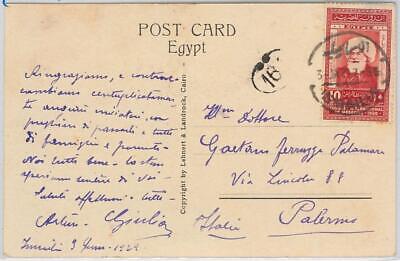 POST CARD
Egypt
EGYPTE
10
16
Ringraziamo, e contrac-
cambiamo centuplicatamen-
te auguri inviatici con
preghiera di passarli a tutti
di famiglia e parenti
Noi tutti bene - lo stesso
speriamo sentire di voi
Saluti affettuosi - tutti
Arturo
Copyright by Lehnert & Landrock, Cairo
Dottore
Gaetano Palamara
Via Lincoln 88
Palermo
Italia